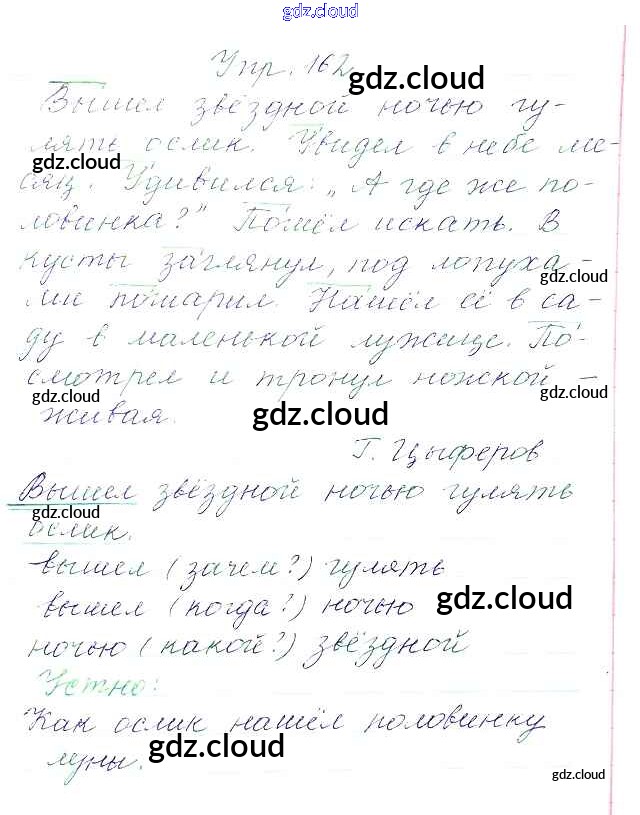 gdz.cloud
Упр. 162
gdz.cloud
Вышел звёздной ночью гу-
лять ослик. Увидел в небе ме-
gdz.cloud
gdz.cloud
сяц. Удивился: „А где же по-
ловинка?" Пошёл искать. В
кусты заглянул, под лопуха-
gdz.cloud
ми пошарил. Нашёл её в са-
ду в маленькой лужице. По-
смотрел и тронул ножкой -
gdz.cloud
gdz.cloud
живая.
gdz.cloud
Г. Цыферов
Вышел звёздной ночью гулять
gdz.cloud
ослик.
вышел (зачем?) гулять
вышел (когда?) ночью
gdz.cloud
ночью (какой?) звёздной
Устно:
Как ослик нашёл половинку
луны.
gdz.cloud
gdz.cloud